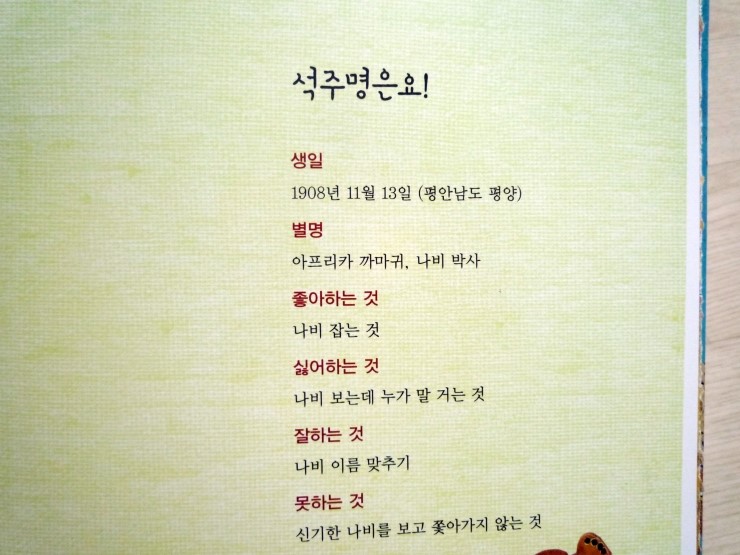 석주명은요!
생일
1908년 11월 13일 (평안남도 평양)
별명
아프리카 까마귀, 나비 박사
좋아하는 것
나비 잡는 것
싫어하는 것
나비 보는데 누가 말 거는 것
잘하는 것
나비 이름 맞추기
못하는 것
신기한 나비를 보고 쫓아가지 않는 것